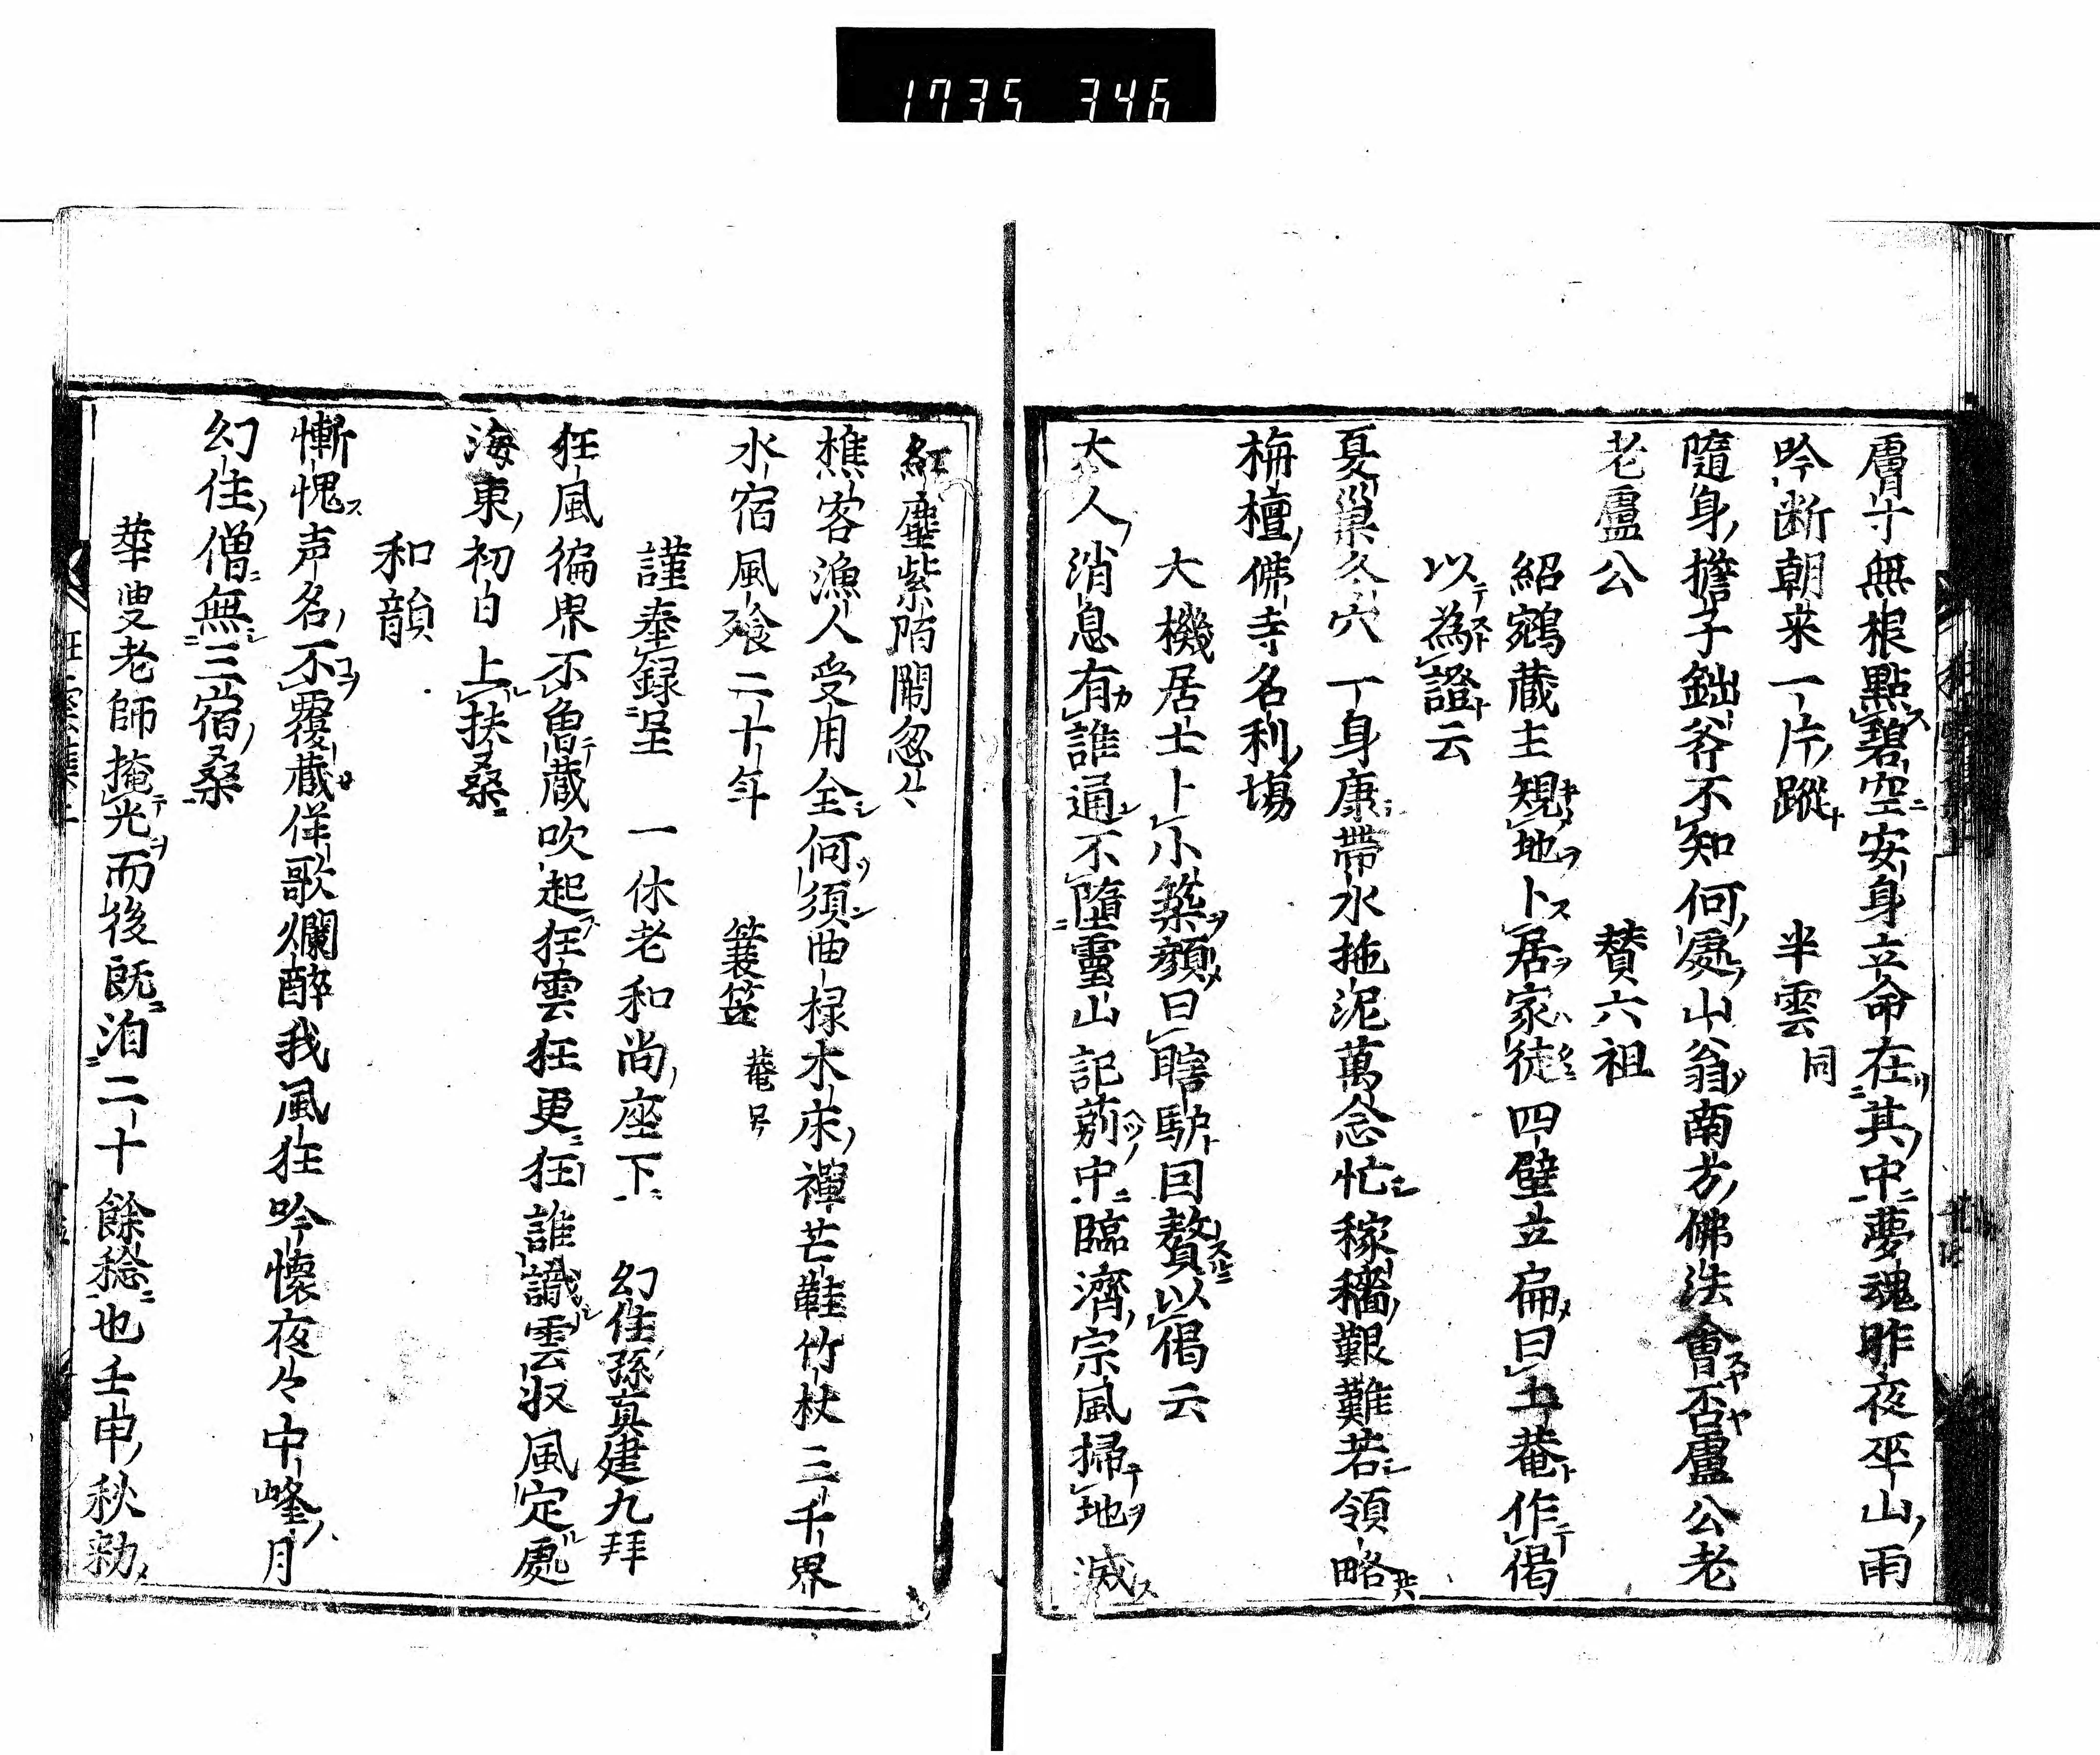 1735 346
膚寸無根點碧空安身立命在其中夢魂昨夜巫山雨
吟断朝来一片蹤　半雲同
隨身擔子鈯斧不知何處山翁南方佛法會否盧公老
老盧公　賛六祖
紹鵷蔵主規地卜居家徒四壁立扁曰土菴作偈
以為證云
夏巢冬穴一身康帶水拖泥萬念忙稼穡艱難若領略
栴檀佛寺名利場
大機居士卜小築顔曰瞎驢因贅以偈云
大人消息有誰通不墮靈山記莂中臨濟宗風掃地滅
紅塵紫陌閙忽々
樵客漁人受用全何須曲椂木床禪芒鞋竹杖三千界
水宿風飡二十年　簑笠　菴号
謹奉録呈　一休老和尚座下　幻住孫真建九拜
狂風徧界不曽蔵吹起狂雲狂更狂誰識雲収風定處
海東初日上扶桑
和韻
慚愧声名不覆蔵佯歌爛醉我風狂吟懐夜々中峰月
幻住僧無三宿桑
華叟老師掩光而後既洎二十餘稔也壬申秋勅